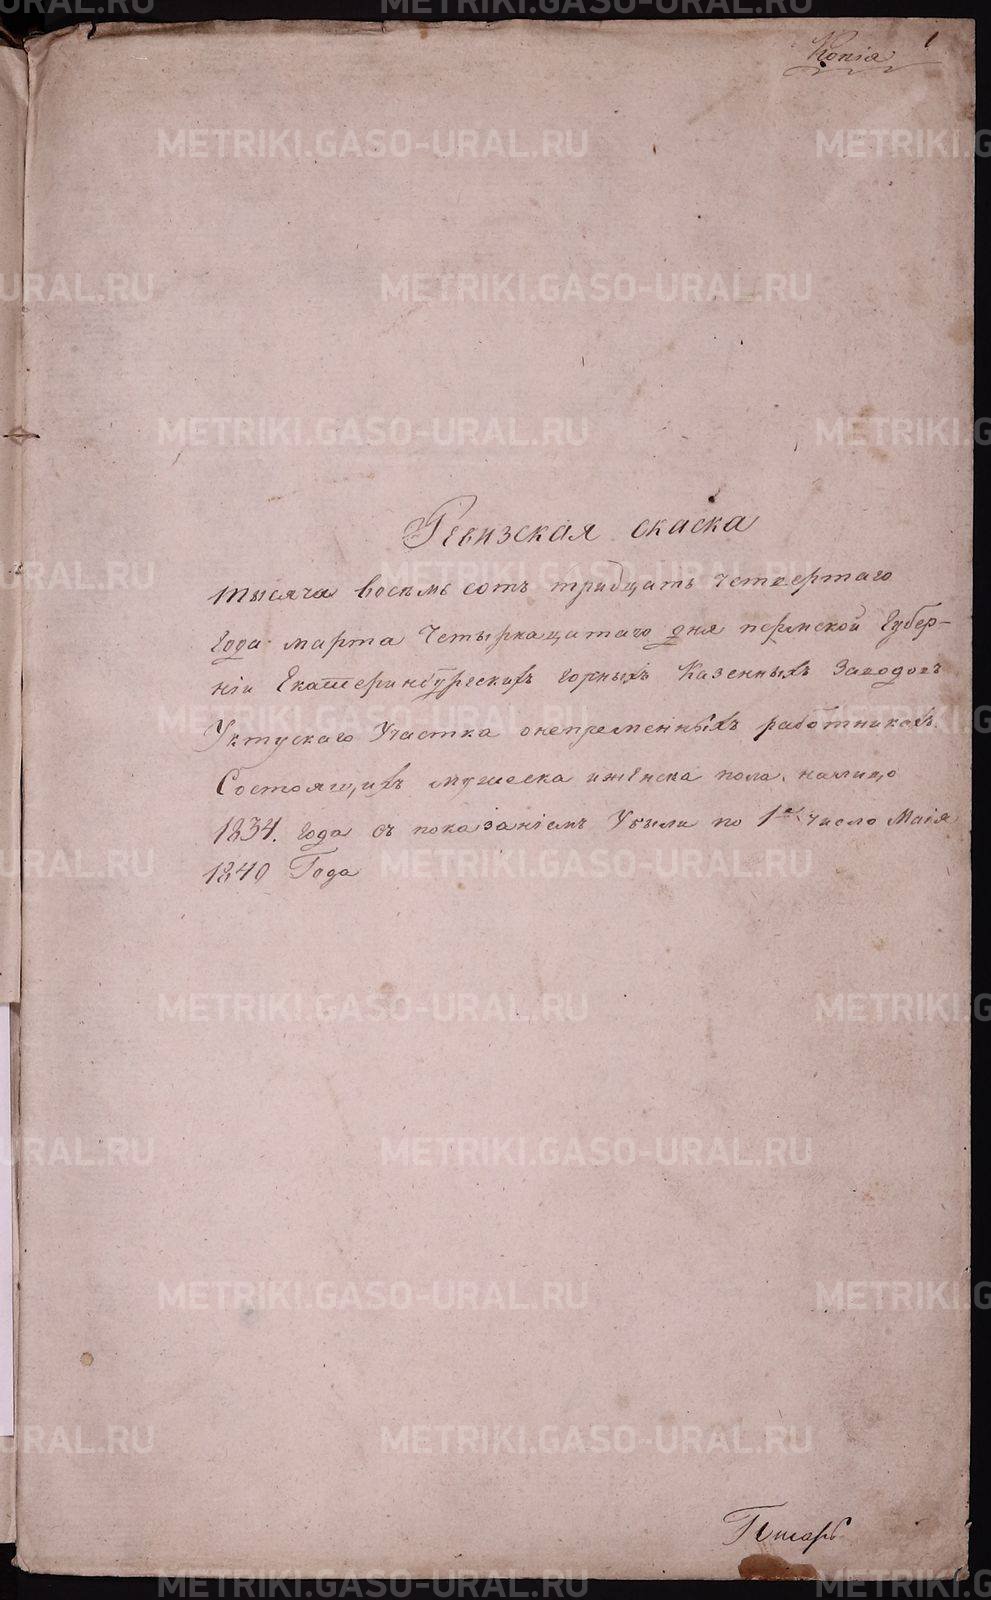 Копія
1
Ревизская скаска
тысяча восемь сотъ тридцать четвертаго
Года марта Четырнацатаго дня пермской Губер-
ніи Екатеринбургскихъ горныхъ Казенныхъ Заводовъ
Уктускаго Участка онепременныхъ работникахъ
Состоящихъ мужеска иженска пола, налицо
1834. года съ показаніемъ Убыли по 1е число Маія
1840 Года
Писарь